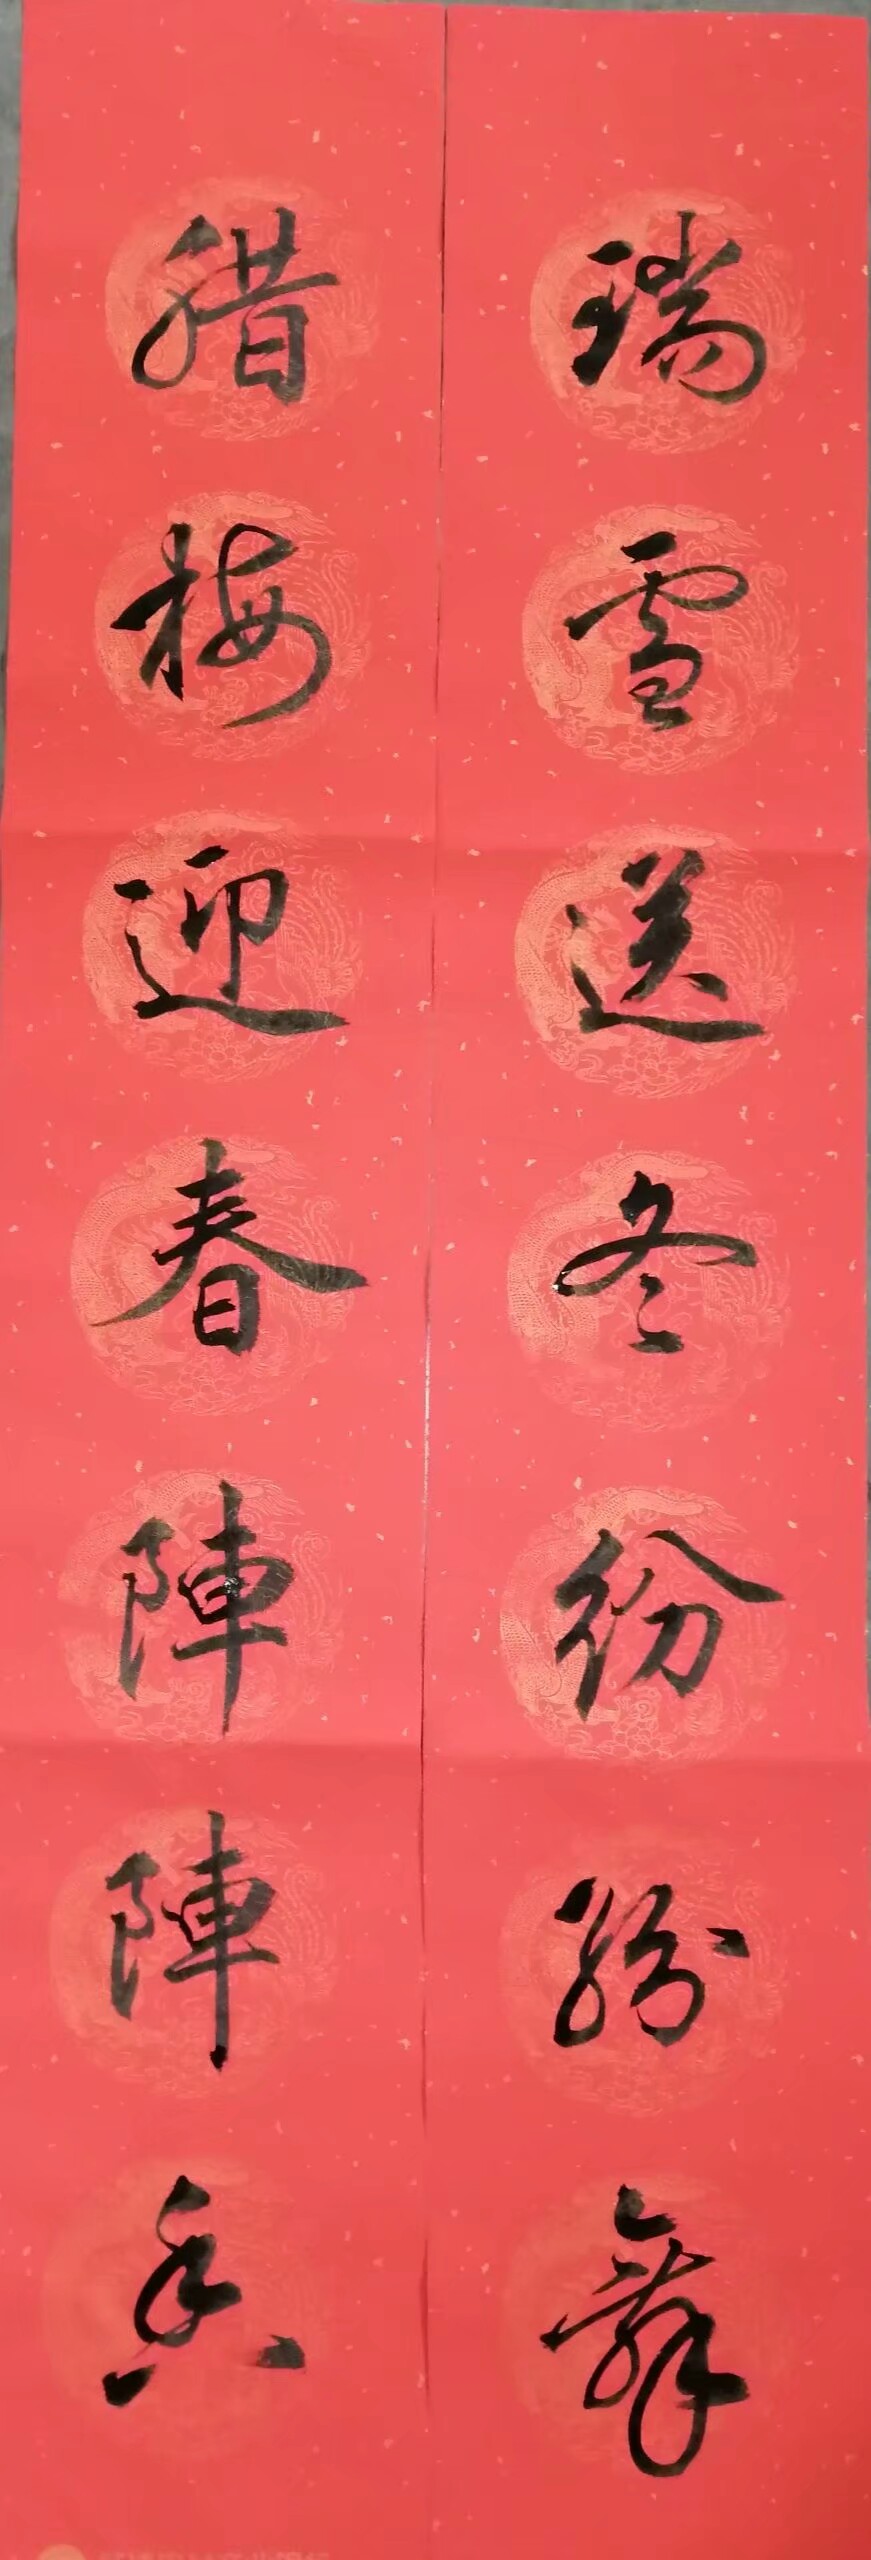 瑞雪送冬纷纷舞
腊梅迎春陣陣香